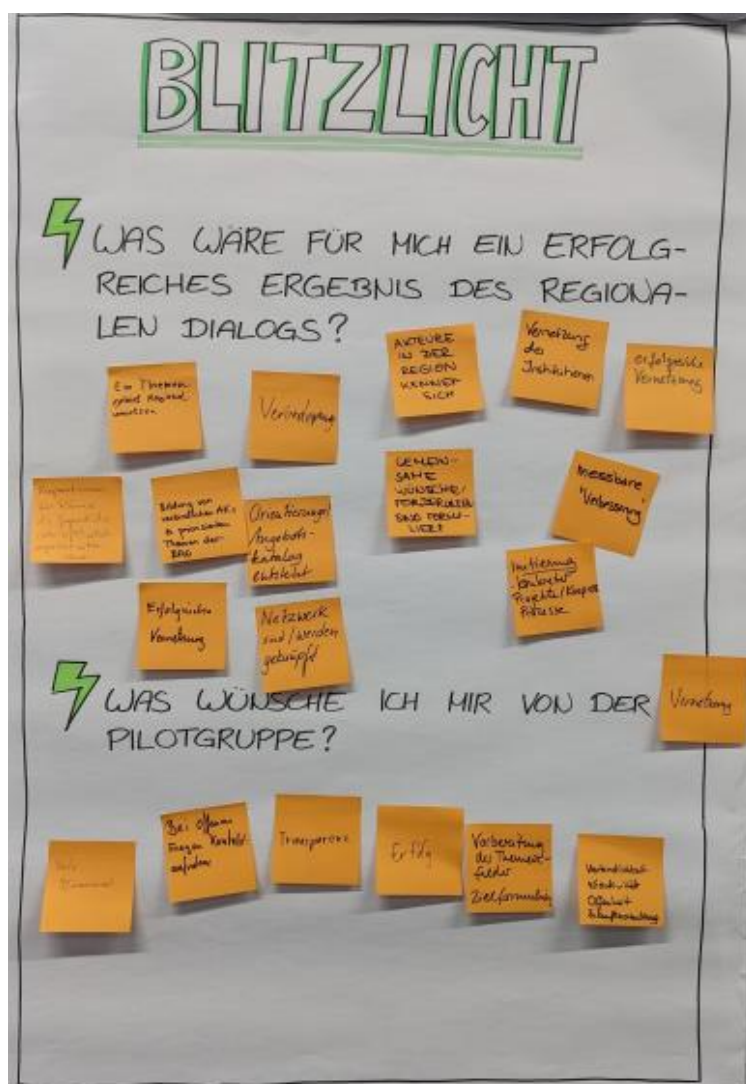 BLITZLICHT
WAS WÄRE FÜR MICH EIN ERFOLG-
REICHES ERGEBNIS DES REGIONA-
LEN DIALOGS?
Ein Themen
AKTEURE
IN DER
REGION
KENNEN
SICH
Vernetzung
der
Institutionen
erfolgreiche
Vernetzung
Bildung von
verbindlichen AK's
Themen der
Orientierungs/
Angebots-
katalog
entsteht
GEMEIN-
SAME
WÜNSCHE/
FORDERUNGEN
SIND FORMU-
LIERT
messbare
Verbesserung
Initiierung
konkrete
Projekte/Koop
Prozesse
Erfolgreiche
Vernetzung
Netzwerk
sind/werden
geknüpft
WAS WÜNSCHE ICH MIR VON DER
PILOTGRUPPE?
Vernetzung
Bei offenen
Fragen Kontakt
Transparenz
Erfolg
Vorbereitung
der Themen-
felder
Zielformulierung
Verbindlichkeit
Offenheit